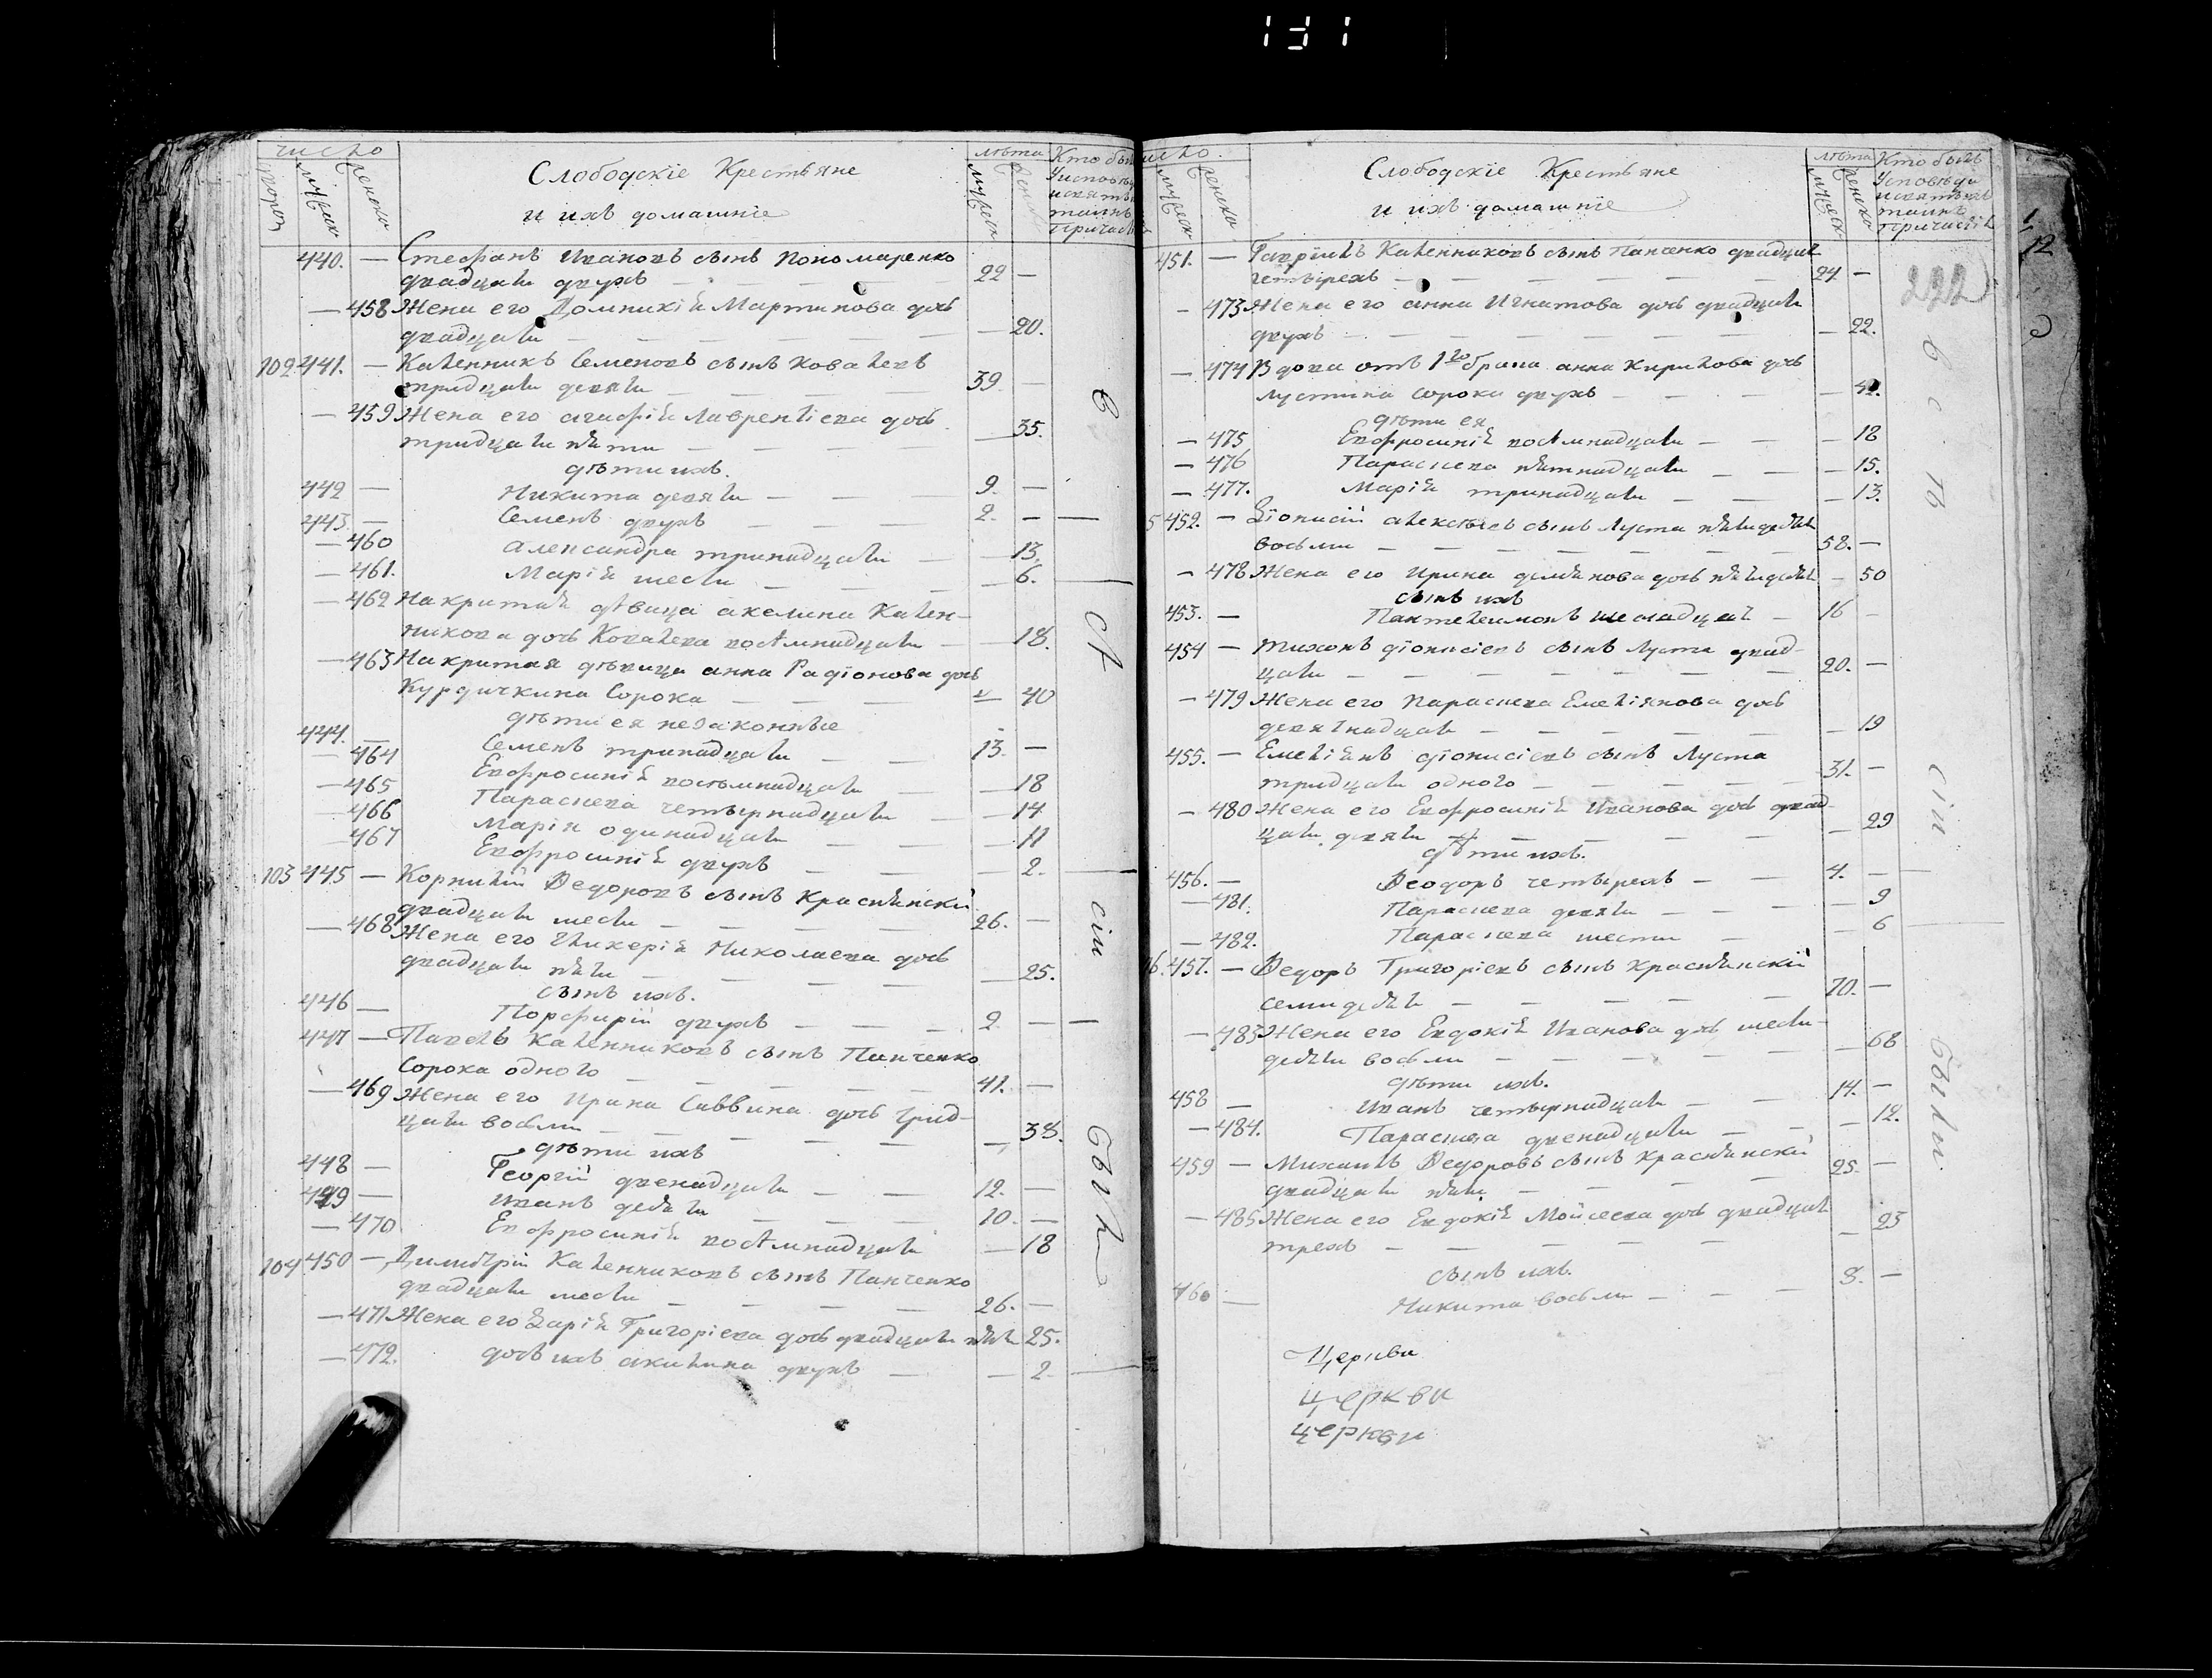 131
число
дворов
мужеск
женска
Слободскіе Крестьяне
и ихъ домашніе
лѣта
мужеск
женск
Кто был
у исповѣд
и святых
таинъ
причаст
440. — Стефанъ Ивановъ сынъ Пономаренко
двадцати двухъ — 22 —
— 458 Жена его Домникія Мартинова дочь
двадцати — — 20.
102 441. — Каленникъ Семеновъ сынъ Ковалевъ
тридцати девяти 39 —
— 459 Жена его Агафія Лаврентіева дочь
тридцати пяти — — 35.
дѣти ихъ.
442 — Никита девяти — 9. —
443. — Семенъ двухъ — 2. —
— 460 Александра тринадцати — 13
— 461. Марія шести — 6.
— 462 Накритая дѣвица Акелина Кален-
никова дочь Ковалева восѣмнадцати — 18.
— 463 Накритая дѣвица Анна Радіонова дочь
Курдичкина Сорока — 40
дѣти ея незаконные
444. — Семенъ тринадцати 13. —
— 464 Евфросинія восьмнадцати — 18
— 465 Параскева четырнадцати — 14
— 466 Марія одинадцати — 11
— 467 Евфросинія двухъ — 2.
103 445 — Корнилій Ѳедоровъ сынъ Краснянскій
двадцати шести 26. —
— 468 Жена его Гликерія Николаева дочь
двадцати пяти — — 25.
сынъ ихъ.
446 — Порфирій двухъ — 2 —
447 — Павелъ Каленниковъ сынъ Панченко
Сорока одного 41. —
— 469 Жена его Ирина Саввина дочь трид-
цати восьми — 38.
дѣти ихъ
448 — Георгій двенадцати — 12. —
449 — Иванъ десяти 10. —
— 470 Евфросинія восѣмнадцати — 18
104 450 — Димитрій Каленниковъ сынъ Панченко
двадцати шести 26. —
— 471 Жена его Дарія Григоріева дочь двадцати пяти 25.
— 472. дочь ихъ Акилина двухъ — — 2
всѣ
сіи
был
число.
мужеск
женска
Слободскіе Крестьяне
и ихъ домашніе
лѣта
мужеск
женска
Кто былъ
У исповѣди
и святыхъ
таинъ
причастія
222
12
451. — Гавріилъ Каленниковъ сынъ Панченко двадцати
четырехъ — 24 —
— 473 Жена его Анна Игнатова дочь двадцати
двухъ — — 22.
— 474 Вдова отъ 1го брака Анна Кирилова дочь
Лустина сорока двухъ — — 42.
дѣти ея
— 475 Евфросинія восѣмнадцати — — 18
— 476 Параскева пятнадцати — — 15.
— 477. Марія тринадцати — — 13.
5 452. — Діонисій Алексѣевъ сынъ Луста пятидесяти
восьми — 58. —
— 478 Жена его Ирина Демянова дочь пятидесяти — 50
сынъ ихъ
453. — Пантелеимонъ шеснадцати — 16 —
454 — Тихонъ Діонисіевъ сынъ Луста двад-
цати — 20. —
— 479 Жена его Параскева Емеліянова дочь
девятнадцати — — 19
455. — Емеліянъ Діонисіевъ сынъ Луста
тридцати одного — 31. —
— 480 Жена его Евфросинія Иванова дочь двад-
цати девяти — — 29
дѣти ихъ.
456. — Ѳеодоръ четырехъ — 4. —
— 481. Параскева девяти — — 9
— 482. Параскева шести — — 6
6. 457. — Ѳедоръ Григоріевъ сынъ Краснянскій
семидесяти — 70. —
— 483 Жена его Евдокія Иванова дочь шести-
десяти восьми — — 68
дѣти ихъ.
458 — Иванъ четырнадцати — 14. —
— 484. Параскева двенадцати — — 12.
459 — Михаилъ Ѳедоровъ сынъ Краснянскій
двадцати пяти 25. —
— 485 Жена его Евдокія Мойсеева дочь двадцати
трехъ — — 23
сынъ ихъ.
460 — Никита восьми — 8. —
всѣ
сіи
были
Церкви
церкви
церкви